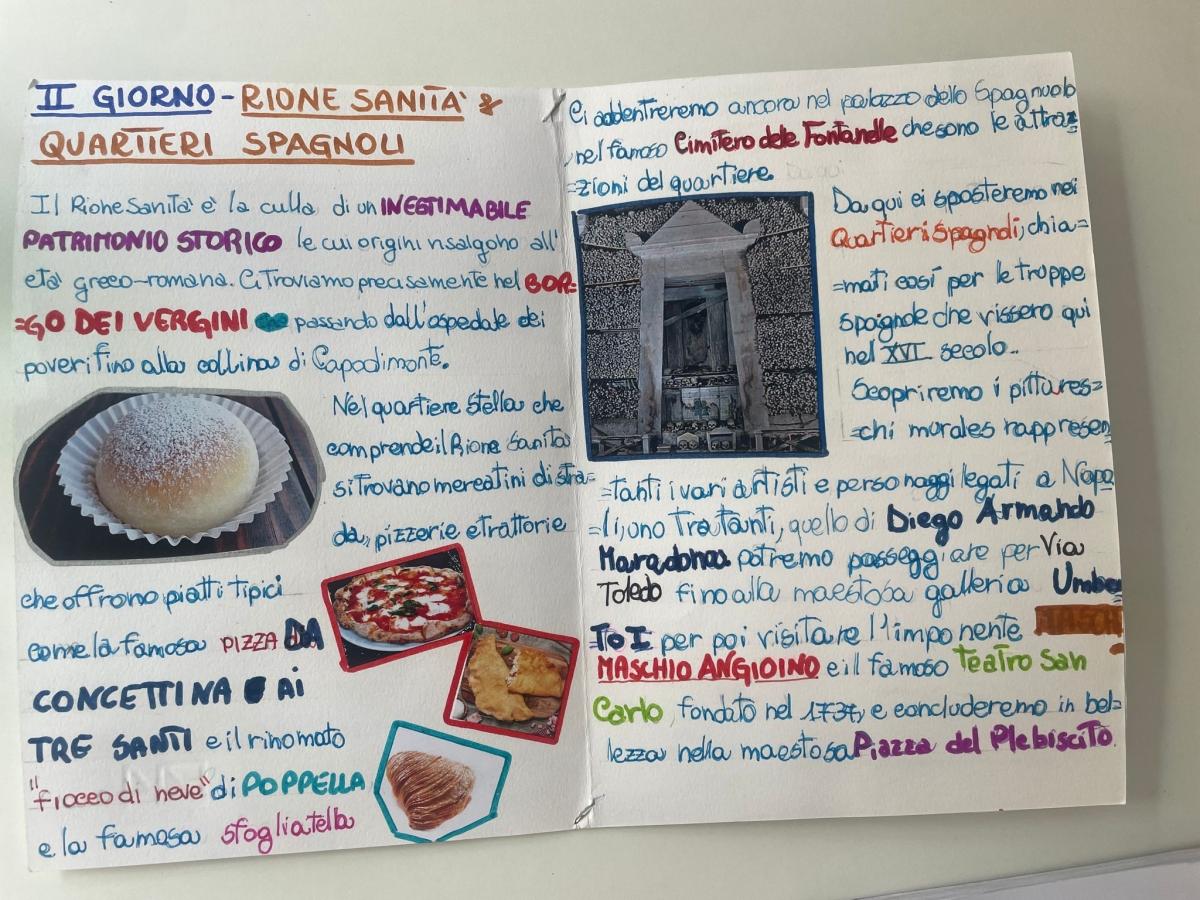 II GIORNO - RIONE SANITA' &
QUARTIERI SPAGNOLI
Il Rione Sanita' è la culla di un INESTIMABILE
PATRIMONIO STORICO le cui origini risalgono all'
età greco-romana. Ci troviamo precisamente nel BOR=
=GO DEI VERGINI passando dall'ospedale dei
poveri fino alla collina di Capodimonte.
Nel quartiere Stella che
comprende il Rione Sanità
si trovano mercatini di stra=
da, pizzerie e trattorie
che offrono piatti tipici
come la famosa PIZZA DA
CONCETTINA AI
TRE SANTI e il rinomato
"fiocco di neve" di POPPELLA
e la famosa sfogliatella
Ci addentreremo ancora nel palazzo dello Spagnuolo
, nel famoso Cimitero delle Fontanelle che sono le attra=
=zioni del quartiere.
Da qui ci sposteremo nei
Quartieri spagnoli, chia=
=mati così per le truppe
spagnole che vissero qui
nel XVI secolo..
Scopriremo i pittures=
=chi murales rappresen
=tanti i vari artisti e personaggi legati a Napo
=li, uno tra tanti, quello di Diego Armando
Maradona potremo passeggiare per Via
Toledo fino alla maestosa galleria Umbe
TO I per poi visitare l'imponente
MASCHIO ANGIOINO e il famoso teatro San
Carlo, fondato nel 1737, e concluderemo in bel=
lezza nella maestosa Piazza del Plebiscito.